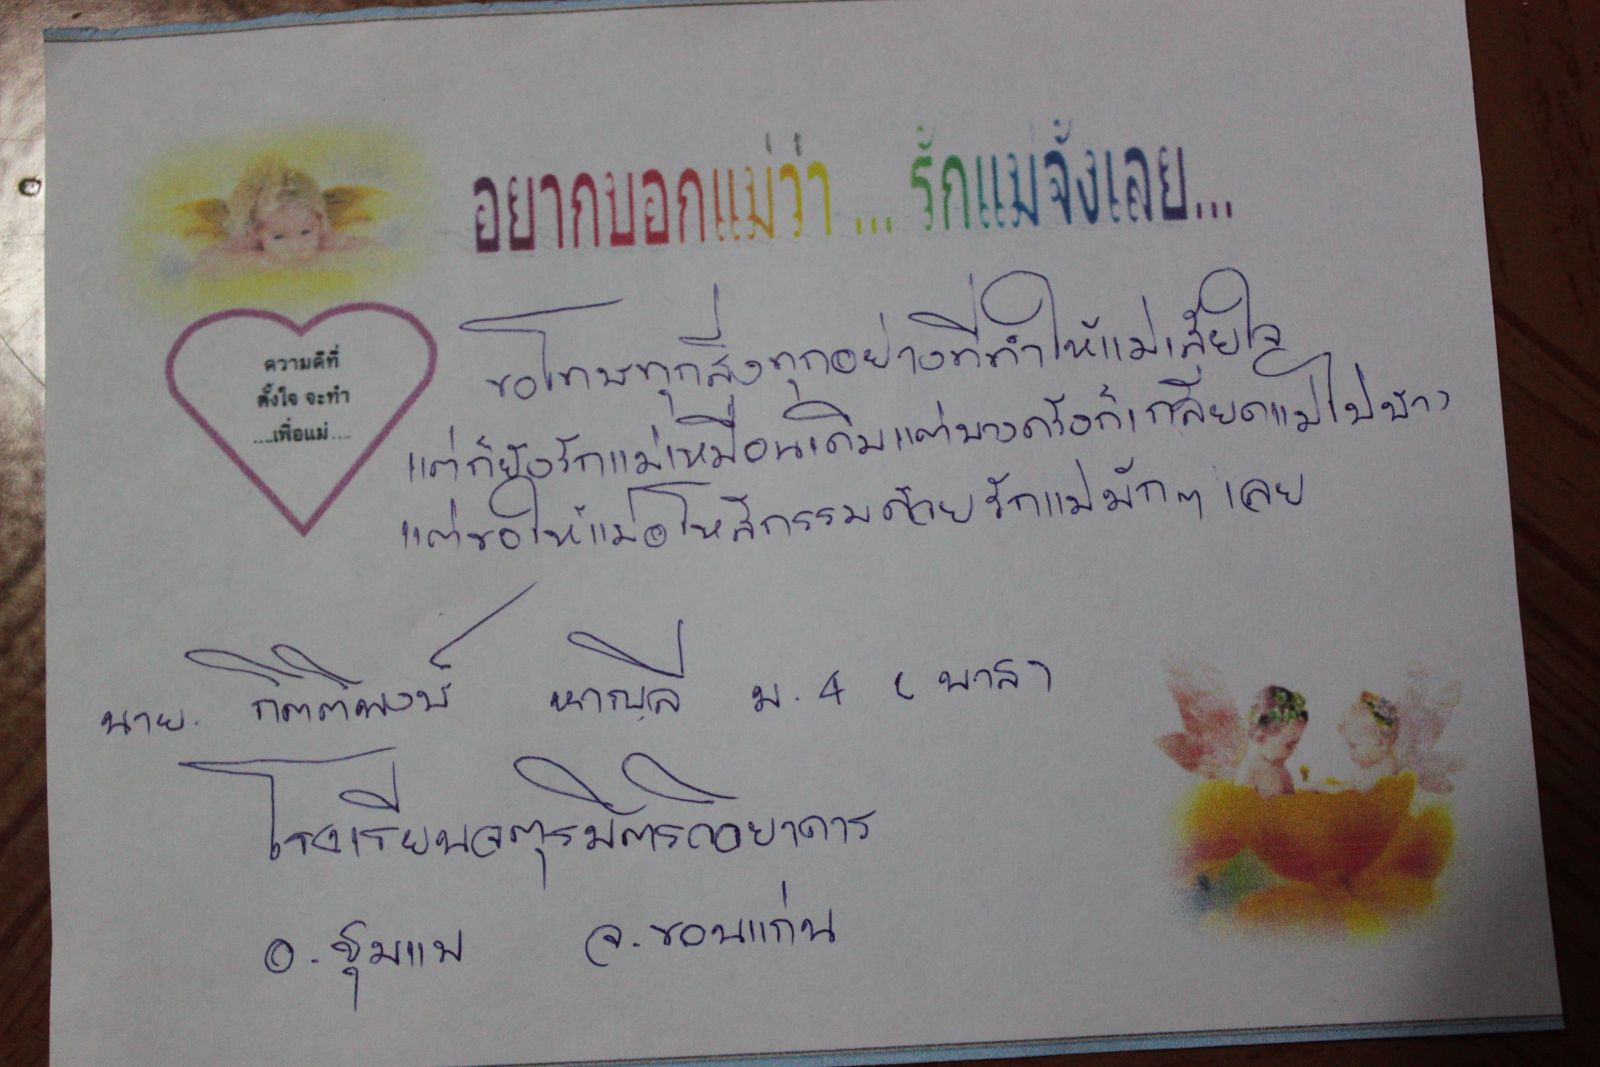 อยากบอกแม่ว่า ... รักแม่จังเลย...
ความดีที่
ตั้งใจ จะทำ
....เพื่อแม่....
ขอโทษทุกสิ่งทุกอย่างที่ทำให้แม่เสียใจ
แต่ก็ยังรักแม่เหมือนเดิมแต่บางครั้งก็เกลียดแม่ไปบ้าง
แต่ขอให้แม่อโหสิกรรมด้วย รักแม่มักๆ เลย
นาย. กิตติพงษ์ ม. 4
โรงเรียนจตุรมิตรวิทยาคาร
อ. ชุมแพ จ. ขอนแก่น